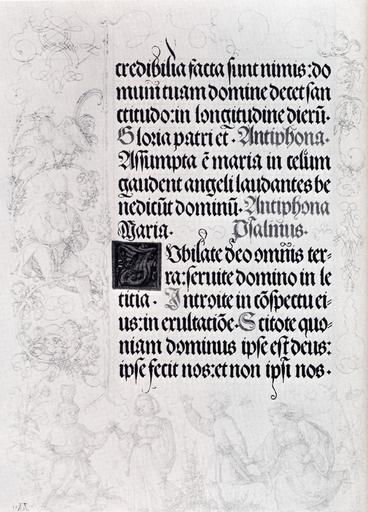 credibilia facta sunt nimis: do
mum tuam domine decet san
ctitudo: in longitudine dierū.
Gloria patri et̄. Antiphona.
Assumpta ē maria in celum
gaudent angeli laudantes be
nedicūt dominū. Antiphona
Maria. Psalmus.
Jvbilate deo omnis ter⸗
ra: seruite domino in le
titia. Introite in cōspectu ei⸗
us: in exultatiōe. Scitote quo⸗
niam dominus ipse est deus:
ipse fecit nos: et non ipsi nos.